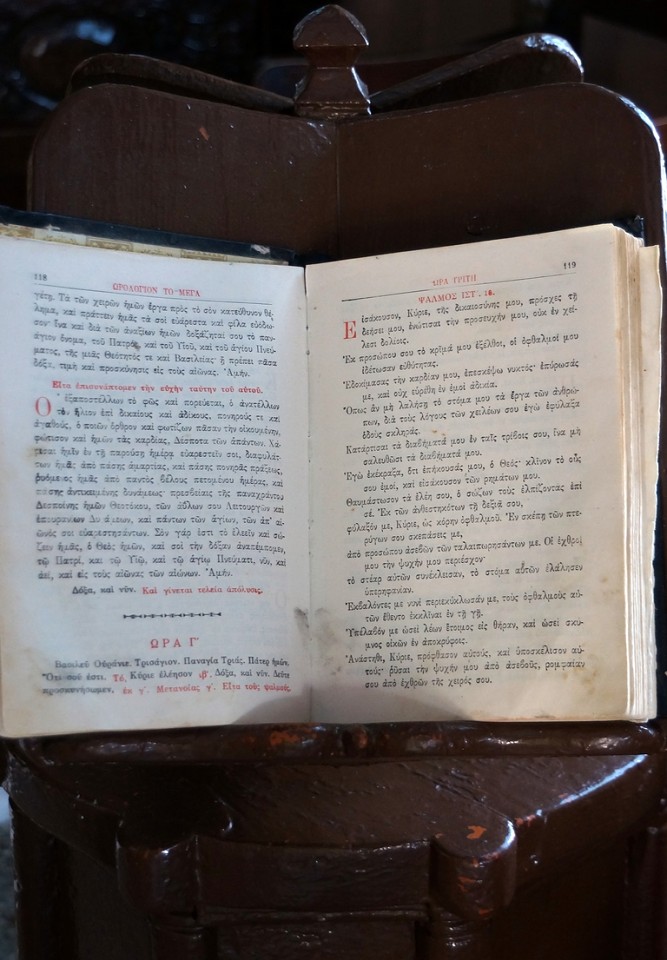 118
ΩΡΟΛΟΓΙΟΝ ΤΟ ΜΕΓΑ
γέτῃ. Τὰ τῶν χειρῶν ἡμῶν ἔργα πρὸς τὸ σὸν κατεύθυνον θέ-
λημα, καὶ πράττειν ἡμᾶς τὰ σοὶ εὐάρεστα καὶ φίλα εὐόδω-
σον· ἵνα καὶ διὰ τῶν ἀναξίων ἡμῶν δοξάζηταί σου τὸ παν-
άγιον ὄνομα, τοῦ Πατρός, καὶ τοῦ Υἱοῦ, καὶ τοῦ ἁγίου Πνεύ-
ματος, τῆς μιᾶς Θεότητός τε καὶ Βασιλείας· ᾗ πρέπει πᾶσα
δόξα, τιμὴ καὶ προσκύνησις εἰς τοὺς αἰῶνας. Ἀμήν.
Εἶτα ἐπισυνάπτομεν τὴν εὐχὴν ταύτην τοῦ αὐτοῦ.
Ὁ ἐξαποστέλλων τὸ φῶς καὶ πορεύεται, ὁ ἀνατέλλων
τὸν ἥλιον ἐπὶ δικαίους καὶ ἀδίκους, πονηρούς τε καὶ
ἀγαθούς, ὁ ποιῶν ὄρθρον καὶ φωτίζων πᾶσαν τὴν οἰκουμένην,
φώτισον καὶ ἡμῶν τὰς καρδίας, Δέσποτα τῶν ἁπάντων. Χά-
ρισαι ἡμῖν ἐν τῇ παρούσῃ ἡμέρᾳ εὐαρεστεῖν σοι, διαφυλάτ-
των ἡμᾶς ἀπὸ πάσης ἁμαρτίας, καὶ πάσης πονηρᾶς πράξεως,
ῥυόμενος ἡμᾶς ἀπὸ παντὸς βέλους πετομένου ἡμέρας, καὶ
πάσης ἀντικειμένης δυνάμεως· πρεσβείαις τῆς παναχράντου
Δεσποίνης ἡμῶν Θεοτόκου, τῶν ἀΰλων σου Λειτουργῶν καὶ
ἐπουρανίων Δυνάμεων, καὶ πάντων τῶν ἁγίων, τῶν ἀπ' αἰ-
ῶνός σοι εὐαρεστησάντων. Σὸν γάρ ἐστι τὸ ἐλεεῖν καὶ σώ-
ζειν ἡμᾶς, ὁ Θεὸς ἡμῶν, καὶ σοὶ τὴν δόξαν ἀναπέμπομεν,
τῷ Πατρί, καὶ τῷ Υἱῷ, καὶ τῷ ἁγίῳ Πνεύματι, νῦν, καὶ
ἀεί, καὶ εἰς τοὺς αἰῶνας τῶν αἰώνων. Ἀμήν.
Δόξα, καὶ νῦν. Καὶ γίνεται τελεία ἀπόλυσις.
ΩΡΑ Γ΄
Βασιλεῦ Οὐράνιε. Τρισάγιον. Παναγία Τριάς. Πάτερ ἡμῶν.
Ὅτι σοῦ ἐστι. Τό, Κύριε ἐλέησον ιβ΄. Δόξα, καὶ νῦν. Δεῦτε
προσκυνήσωμεν, ἐκ γ΄. Μετανοίας γ΄. Εἶτα τοὺς ψαλμούς.
ΩΡΑ ΤΡΙΤΗ
119
ΨΑΛΜΟΣ ΙΣΤ΄. 16.
Εἰσάκουσον, Κύριε, τῆς δικαιοσύνης μου, πρόσχες τῇ
δεήσει μου, ἐνώτισαι τὴν προσευχήν μου, οὐκ ἐν χεί-
λεσι δολίοις.
Ἐκ προσώπου σου τὸ κρῖμά μου ἐξέλθοι, οἱ ὀφθαλμοί μου
ἰδέτωσαν εὐθύτητας.
Ἐδοκίμασας τὴν καρδίαν μου, ἐπεσκέψω νυκτός· ἐπύρωσάς
με, καὶ οὐχ εὑρέθη ἐν ἐμοὶ ἀδικία.
Ὅπως ἂν μὴ λαλήσῃ τὸ στόμα μου τὰ ἔργα τῶν ἀνθρώ-
πων, διὰ τοὺς λόγους τῶν χειλέων σου ἐγὼ ἐφύλαξα
ὁδοὺς σκληράς.
Κατάρτισαι τὰ διαβήματά μου ἐν ταῖς τρίβοις σου, ἵνα μὴ
σαλευθῶσι τὰ διαβήματά μου.
Ἐγὼ ἐκέκραξα, ὅτι ἐπήκουσάς μου, ὁ Θεός· κλῖνον τὸ οὖς
σου ἐμοί, καὶ εἰσάκουσον τῶν ῥημάτων μου.
Θαυμάστωσον τὰ ἐλέη σου, ὁ σώζων τοὺς ἐλπίζοντας ἐπὶ
σέ. Ἐκ τῶν ἀνθεστηκότων τῇ δεξιᾷ σου,
φύλαξόν με, Κύριε, ὡς κόρην ὀφθαλμοῦ. Ἐν σκέπῃ τῶν πτε-
ρύγων σου σκεπάσεις με,
ἀπὸ προσώπου ἀσεβῶν τῶν ταλαιπωρησάντων με. Οἱ ἐχθροί
μου τὴν ψυχήν μου περιέσχον·
τὸ στέαρ αὐτῶν συνέκλεισαν, τὸ στόμα αὐτῶν ἐλάλησεν
ὑπερηφανίαν.
Ἐκβαλόντες με νυνὶ περιεκύκλωσάν με, τοὺς ὀφθαλμοὺς αὑ-
τῶν ἔθεντο ἐκκλῖναι ἐν τῇ γῇ.
Ὑπέλαβόν με ὡσεὶ λέων ἕτοιμος εἰς θήραν, καὶ ὡσεὶ σκύ-
μνος οἰκῶν ἐν ἀποκρύφοις.
Ἀνάστηθι, Κύριε, πρόφθασον αὐτούς, καὶ ὑποσκέλισον αὐ-
τούς· ῥῦσαι τὴν ψυχήν μου ἀπὸ ἀσεβοῦς, ῥομφαίαν
σου ἀπὸ ἐχθρῶν τῆς χειρός σου.